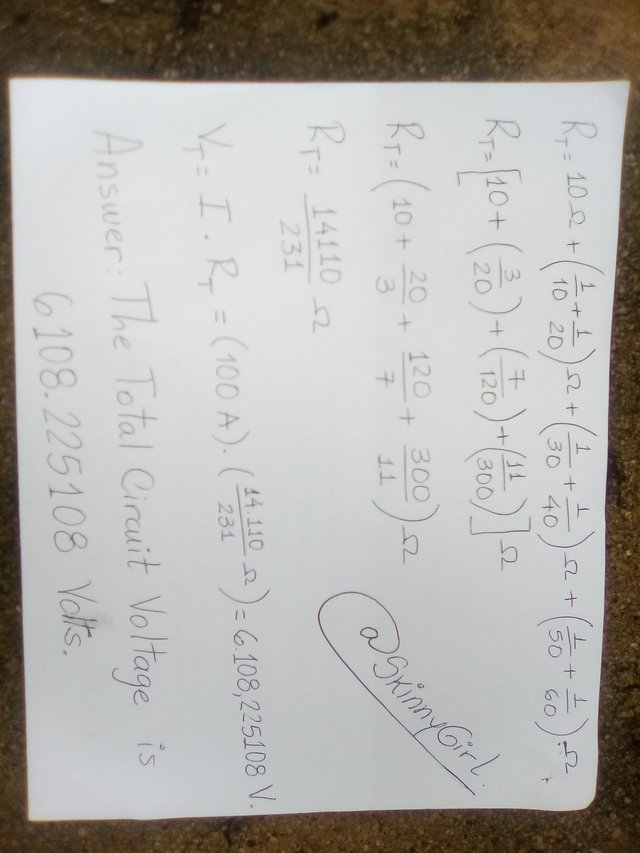 R_T = 10Ω + (1/10 + 1/20)Ω + (1/30 + 1/40)Ω + (1/50 + 1/60).Ω
R_T = [10 + (3/20) + (7/120) + (11/300)]Ω
R_T = (10 + 20/3 + 120/7 + 300/11)Ω
R_T = 14110/231 Ω
@SkinnyGirl.
V_T = I . R_T = (100 A) . (14.110/231 Ω) = 6.108,225108 V.
Answer: The Total Circuit Voltage is
6108.225108 Volts.